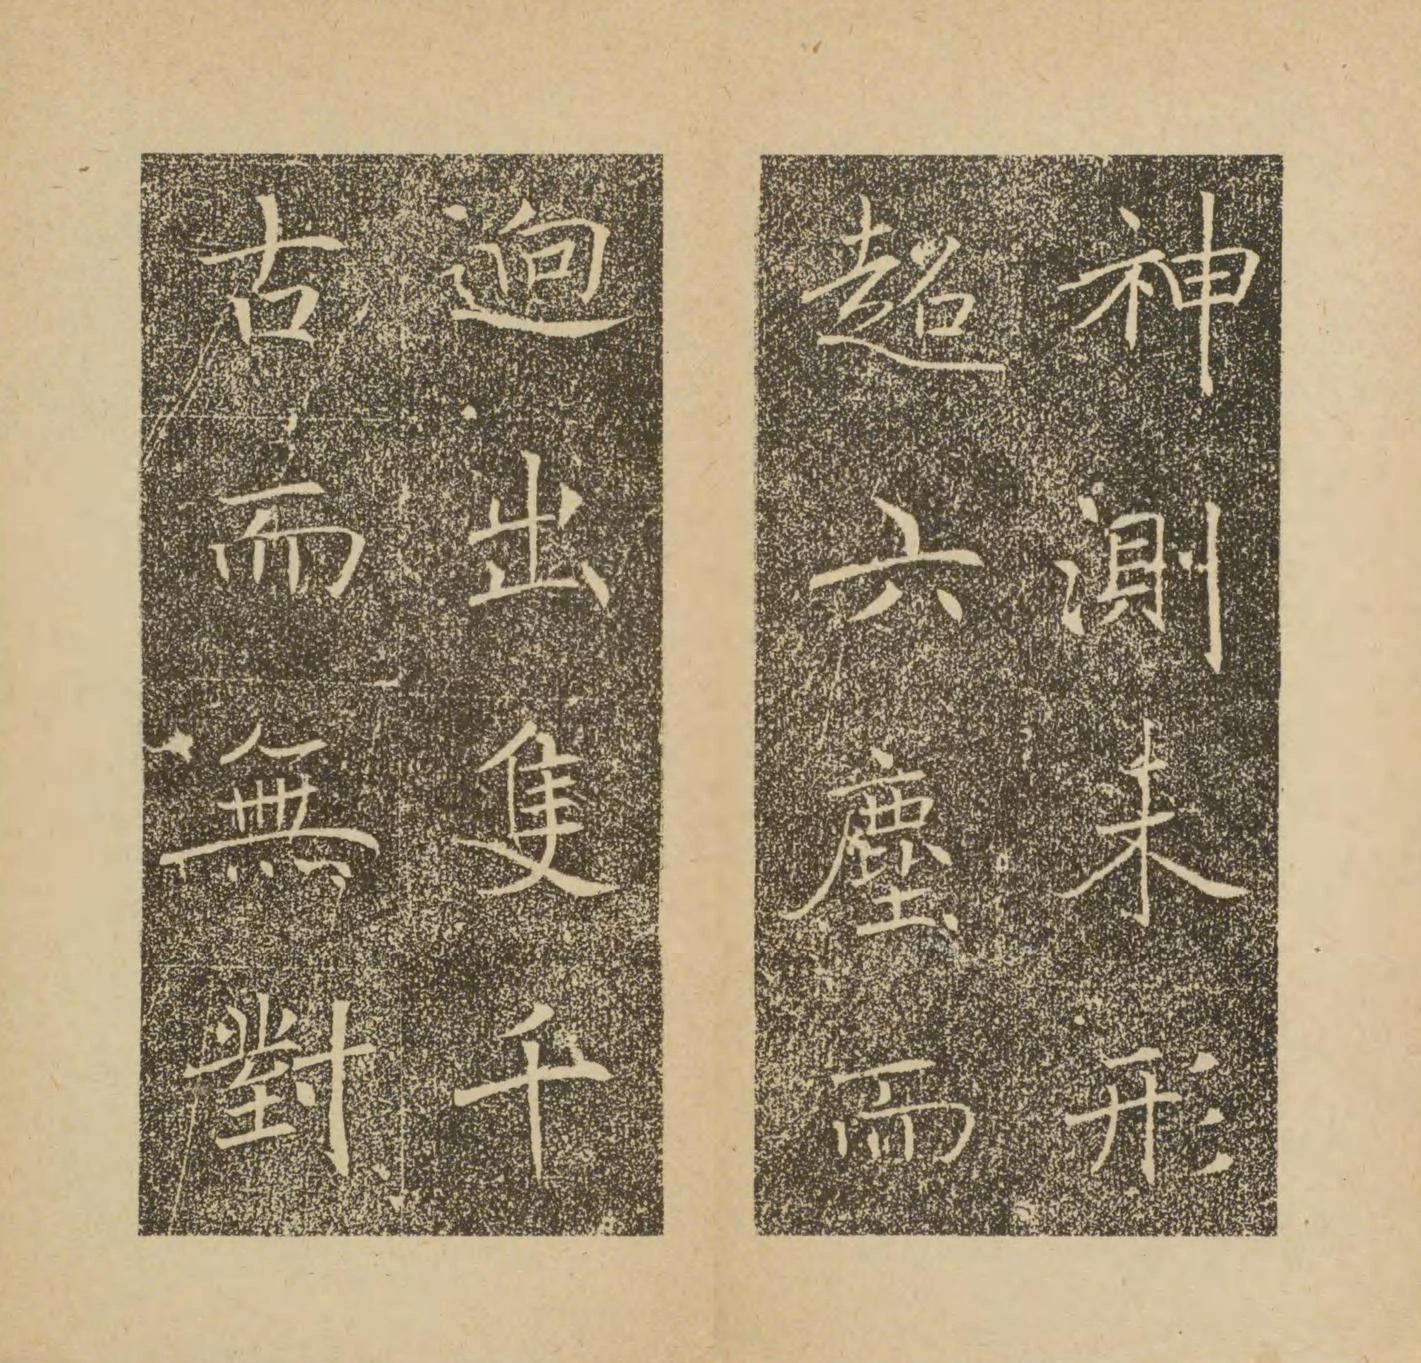 神測未形
超六塵而
逈出隻千
古而無對